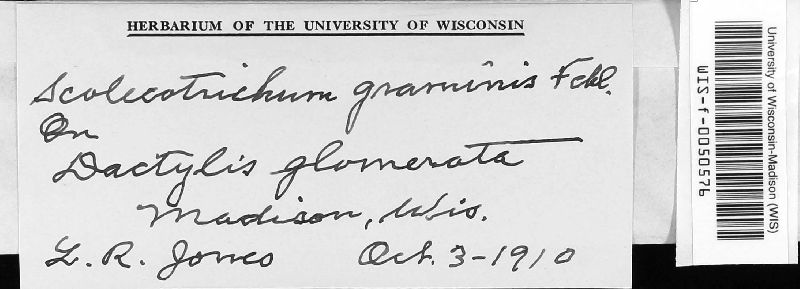 HERBARIUM OF THE UNIVERSITY OF WISCONSIN
Scolecotrichum graminis Fckl.
On
Dactylis glomerata
Madison, Wis.
L. R. Jones Oct. 3-1910
University of Wisconsin-Madison (WIS)
WIS-f-0050576